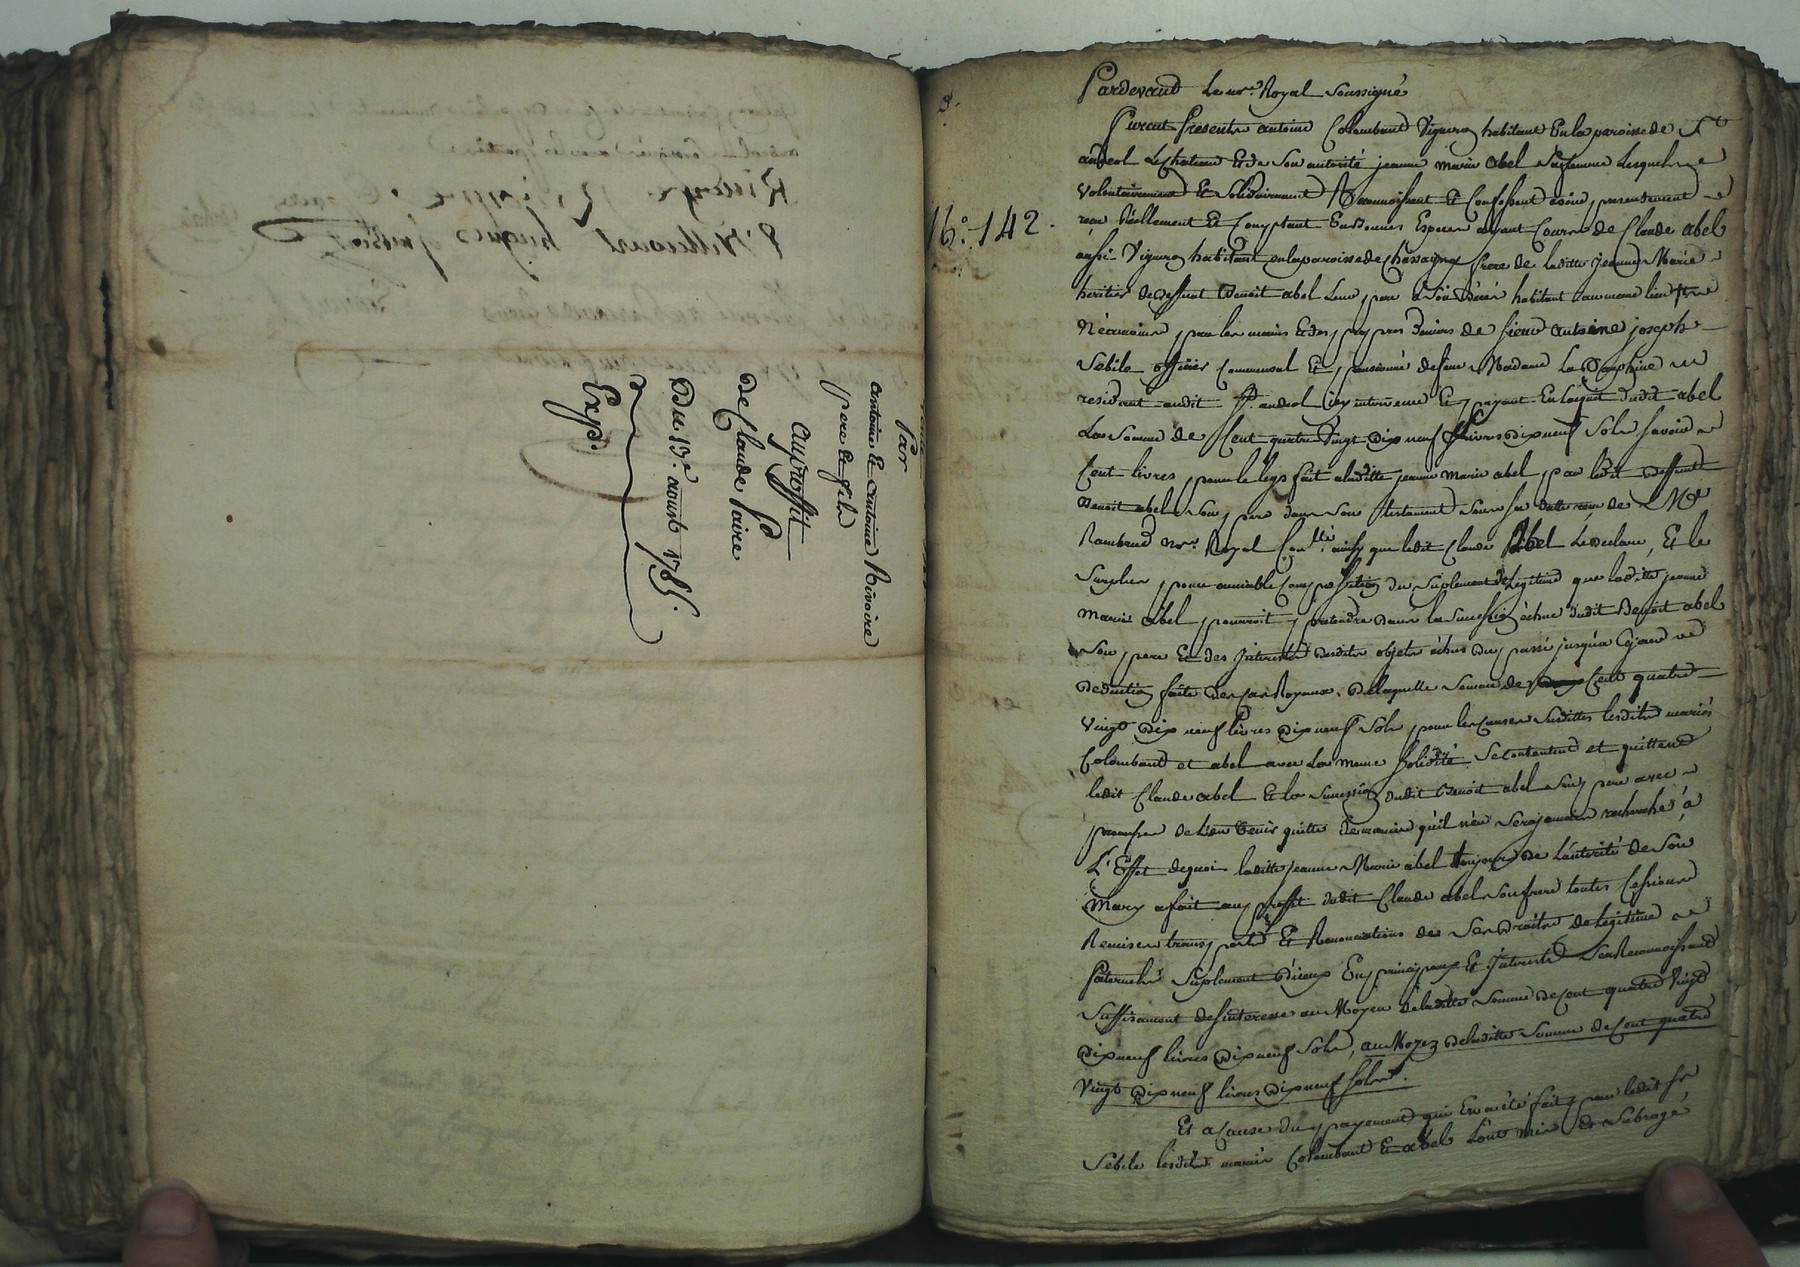 Par
antoine et antoine Rivoire
pere et fils
au proffit
de Claude Poire
Du 13e. aoust 1785.
Exp.
16e. 142.
Pardevant Le nre. Royal Soussigné
furent presents antoine Colombant Vigneron habitant En la paroisse de St
andeol Le chateau Et de Son autorité jeanne marie abel Sa femme Lesquels
Volontairement Et Solidairement Reconnoissent Et Confessent avoir presentement
reçu Réellement Et Comptant En Bonnes Especes ayant Cours de Claude abel
aussi Vigneron habitant en la paroisse de Chassagny frere de laditte jeanne Marie
heritier de deffunt Benoit abel Leur pere à Son Décés habitant au meme lieu
Néanmoins par les mains Et des propres deniers de Sieur antoine joseph
Sebile officier Commensal Et pansionné de feue Madame La Dauphine
residant audit St. andeol icy intervenu Et payant En l'acquit dudit abel
La Somme de Cent quatre Vingt dix neuf Livres dix neuf Sols Savoir
Cent livres pour le legs fait a laditte jeanne Marie abel par ledit deffunt
Benoit abel Son pere dans Son testament Sous Sa datte reçu de Me
Rambaud nore. Royal ainsy que ledit Claude Abel Le declare, Et le
Surplus pour amiable Composition du Suplement de Légitime que laditte jeanne
Marie Abel pourroit pretendre dans la Succession échue dudit Benoit abel
Son pere Et des Interests desdits objets échus du passé jusqu'a Ce jour
Deduction faite des Cas Royaux. De laquelle Somme de Cent quatre
Vingt dix neuf livres dix neuf Sols pour les Causes Susdittes lesdits mariés
Colombant et abel avec La meme Solidité Se Contentent et quittent
ledit Claude abel Et la Succession dudit Benoit abel Son pere avec
promesse de L'en tenir quitte De maniere qu'il n'en Sera jamais recherché, a
L'Effet dequoi laditte jeanne Marie abel toujours de L'autorité de Son
Mary a fait au proffit dudit Claude abel Son frere toutes Cessions
Remises transports Et Renonciations de Ses Droits de legitime
Paternels Suplement d'iceux En principaux Et Interests S'en Reconnoissant
Suffisament desinteressé au Moyen de laditte Somme de Cent quatre Vingt
dix neuf livres dix neuf Sols, au Moyen de laditte Somme de Cent quatre
Vingt dix neuf livres dix neuf Sols.
Et a Cause du payement qui En a été fait par ledit Sr
Sebile lesdits mariés Colombant Et abel L'ont mis Et Subrogé